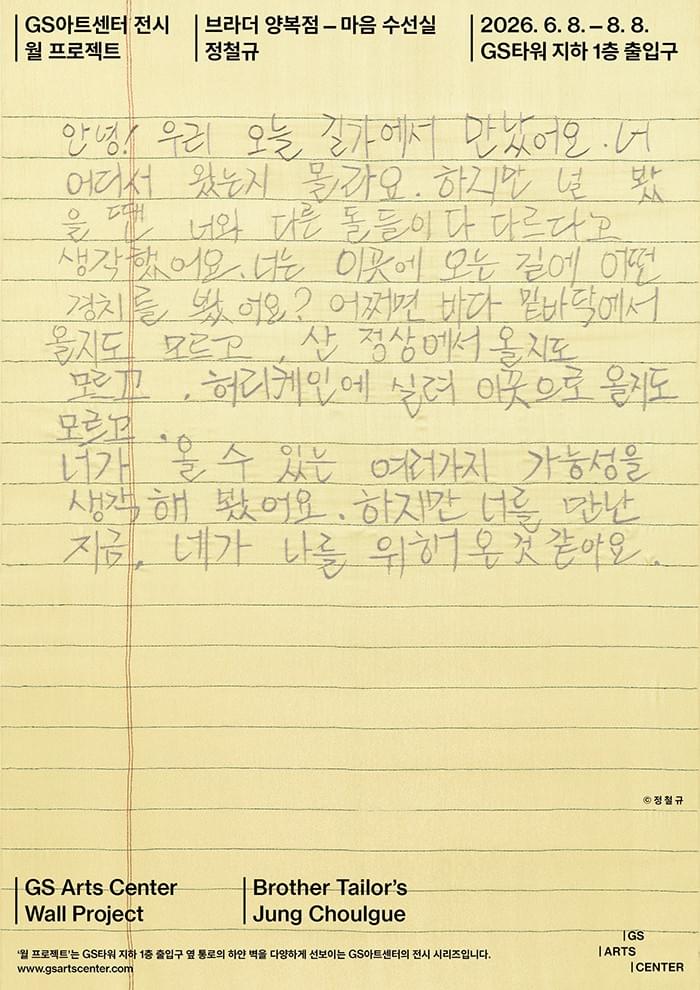 GS아트센터 전시
월 프로젝트
브라더 양복점 – 마음 수선실
정철규
2026. 6. 8. – 8. 8.
GS타워 지하 1층 출입구
안녕! 우리 오늘 길가에서 만났어요. 너
어디서 왔는지 몰라요. 하지만 널 봤
을 땐 너와 다른 돌들이 다 다르다고
생각했어요. 너는 이곳에 오는 길에 어떤
경치를 봤어요? 어쩌면 바다 밑바닥에서
올지도 모르고, 산 정상에서 올지도
모르고. 허리케인에 실려 이곳으로 올지도
모르고.
너가 올 수 있는 여러가지 가능성을
생각해 봤어요. 하지만 너를 만난
지금, 네가 나를 위해 온 것 같아요.
© 정철규
GS Arts Center
Wall Project
Brother Tailor's
Jung Choulgue
'월 프로젝트'는 GS타워 지하 1층 출입구 옆 통로의 하얀 벽을 다양하게 선보이는 GS아트센터의 전시 시리즈입니다.
www.gsartscenter.com
GS
ARTS
CENTER